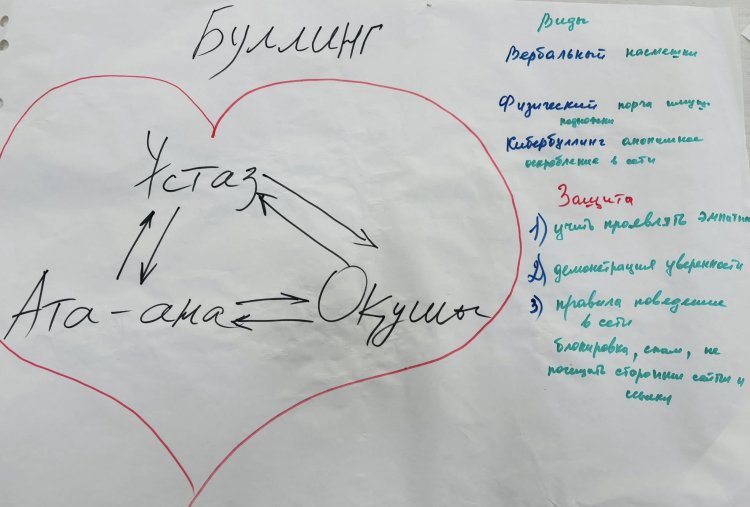 Буллинг
Ұстаз
Ата-ана
Оқушы
Виды
Вербальный насмешки
Физический порча имущ.
подножки
Кибербуллинг анонимное
оскробление в сети
Защита
1) учить проявлять эмпатию
2) демонстрация уверенности
3) правила поведение
в сети
блокировка, спам, не
посещать сторонние сайты и
ссылки